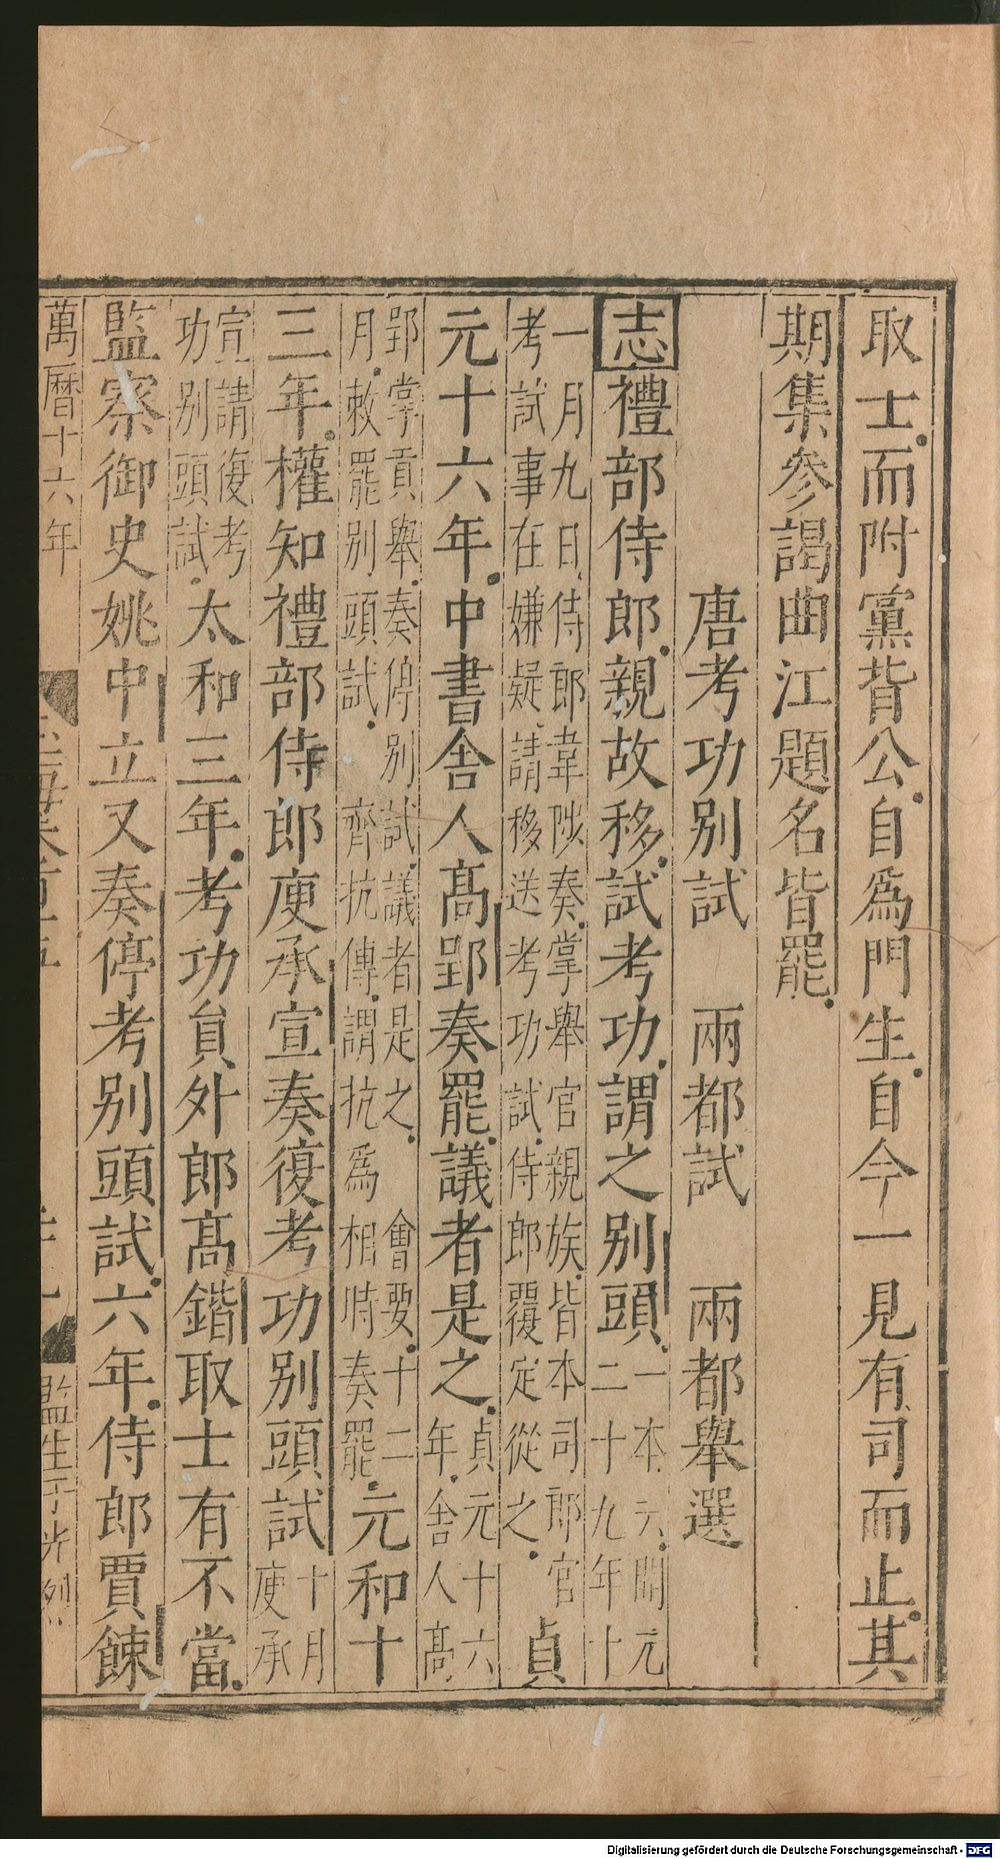 取士而附黨背公自為門生自今一見有司而止其
期集參謁曲江題名皆罷
唐考功別試　兩都試　兩都舉選
志禮部侍郎親故移試考功謂之別頭一本云開元二十九年十
一月九日侍郎韋陟奏掌舉官親族皆本司郎官考試事在嫌疑請移送考功試侍郎覆定從之貞
元十六年中書舍人高郢奏罷議者是之貞元十六年舍人高
郢掌貢舉奏停別試議者是之　會要十二月敕罷別頭試　齊抗傳謂抗為相時奏罷元和十
三年權知禮部侍郎庾承宣奏復考功別頭試十月庾承
宣請復考功別頭試太和三年考功員外郎高鍇取士有不當
監察御史姚中立又奏停考別頭試六年侍郎賈餗
萬曆十六年
監生
Digitalisierung gefördert durch die Deutsche Forschungsgemeinschaft - DFG